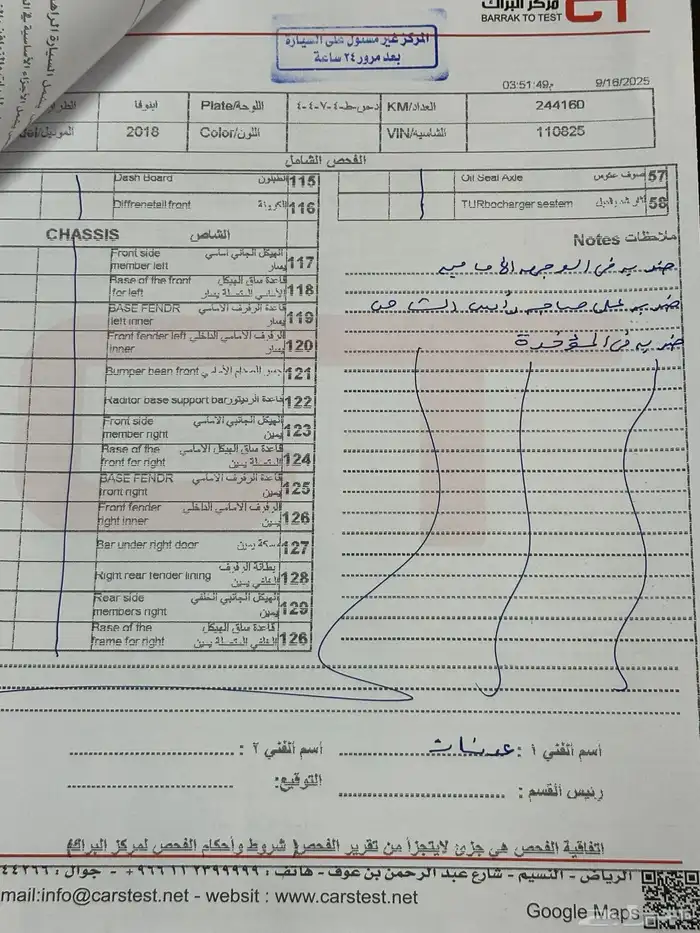 مركز البراك
BARRAK TO TEST
CT
المركز غير مسئول على السيارة
بعد مرور ٢٤ ساعة
9/16/2025 03:51:49م
اللوحة/Plate العداد/KM 244160
الموديل 2018 اللون/Color الشاسيه/VIN 110825
الفحص الشامل
115 Dash Board
116 Diffrenetail front
57 Oil Seal Axle
58 TURbocharger sestem
CHASSIS الشاص
117 الهيكل الجانبي اساسي يسار Front side member left
118 قاعدة ساق الهيكل الأساسي المتصلة يسار Base of the front for left
119 قاعدة الرفرف الاساسي يسار BASE FENDR left inner
120 الرفرف الاساسي الداخلي يسار Front fender left inner
121 Bumper bean front
122 Raditor base support bar
123 الهيكل الجانبي الاساسي يمين Front side member right
124 قاعدة ساق الهيكل الأساسي المتصلة يمين Base of the front for right
125 قاعدة الرفرف الاساسي يمين BASE FENDR front right
126 الرفرف الاساسي الداخلي يمين Front fender right inner
127 مسكة يمين Bar under right door
128 بطانة الرفرف الخلفي يمين Right rear fender lining
129 الهيكل الجانبي الخلفي يمين Rear side members right
126 قاعدة ساق الهيكل الخلفي المتصلة يمين Base of the frame for right
ملاحظات Notes
ضربه في الوجهه الأماميه
ضربه في المؤخرة
اسم الفني ١ : عدنان
اسم الفني ٢ :
رئيس القسم :
التوقيع:
اتفاقية الفحص هي جزئ لايتجزأ من تقرير الفحص( شروط وأحكام الفحص لمركز البراك)
الرياض - النسيم - شارع عبد الرحمن بن عوف - هاتف : ٩٦٦١١٢٣٩٩٩٩٩+ - جوال :
mail:info@carstest.net - websit : www.carstest.net
Google Maps